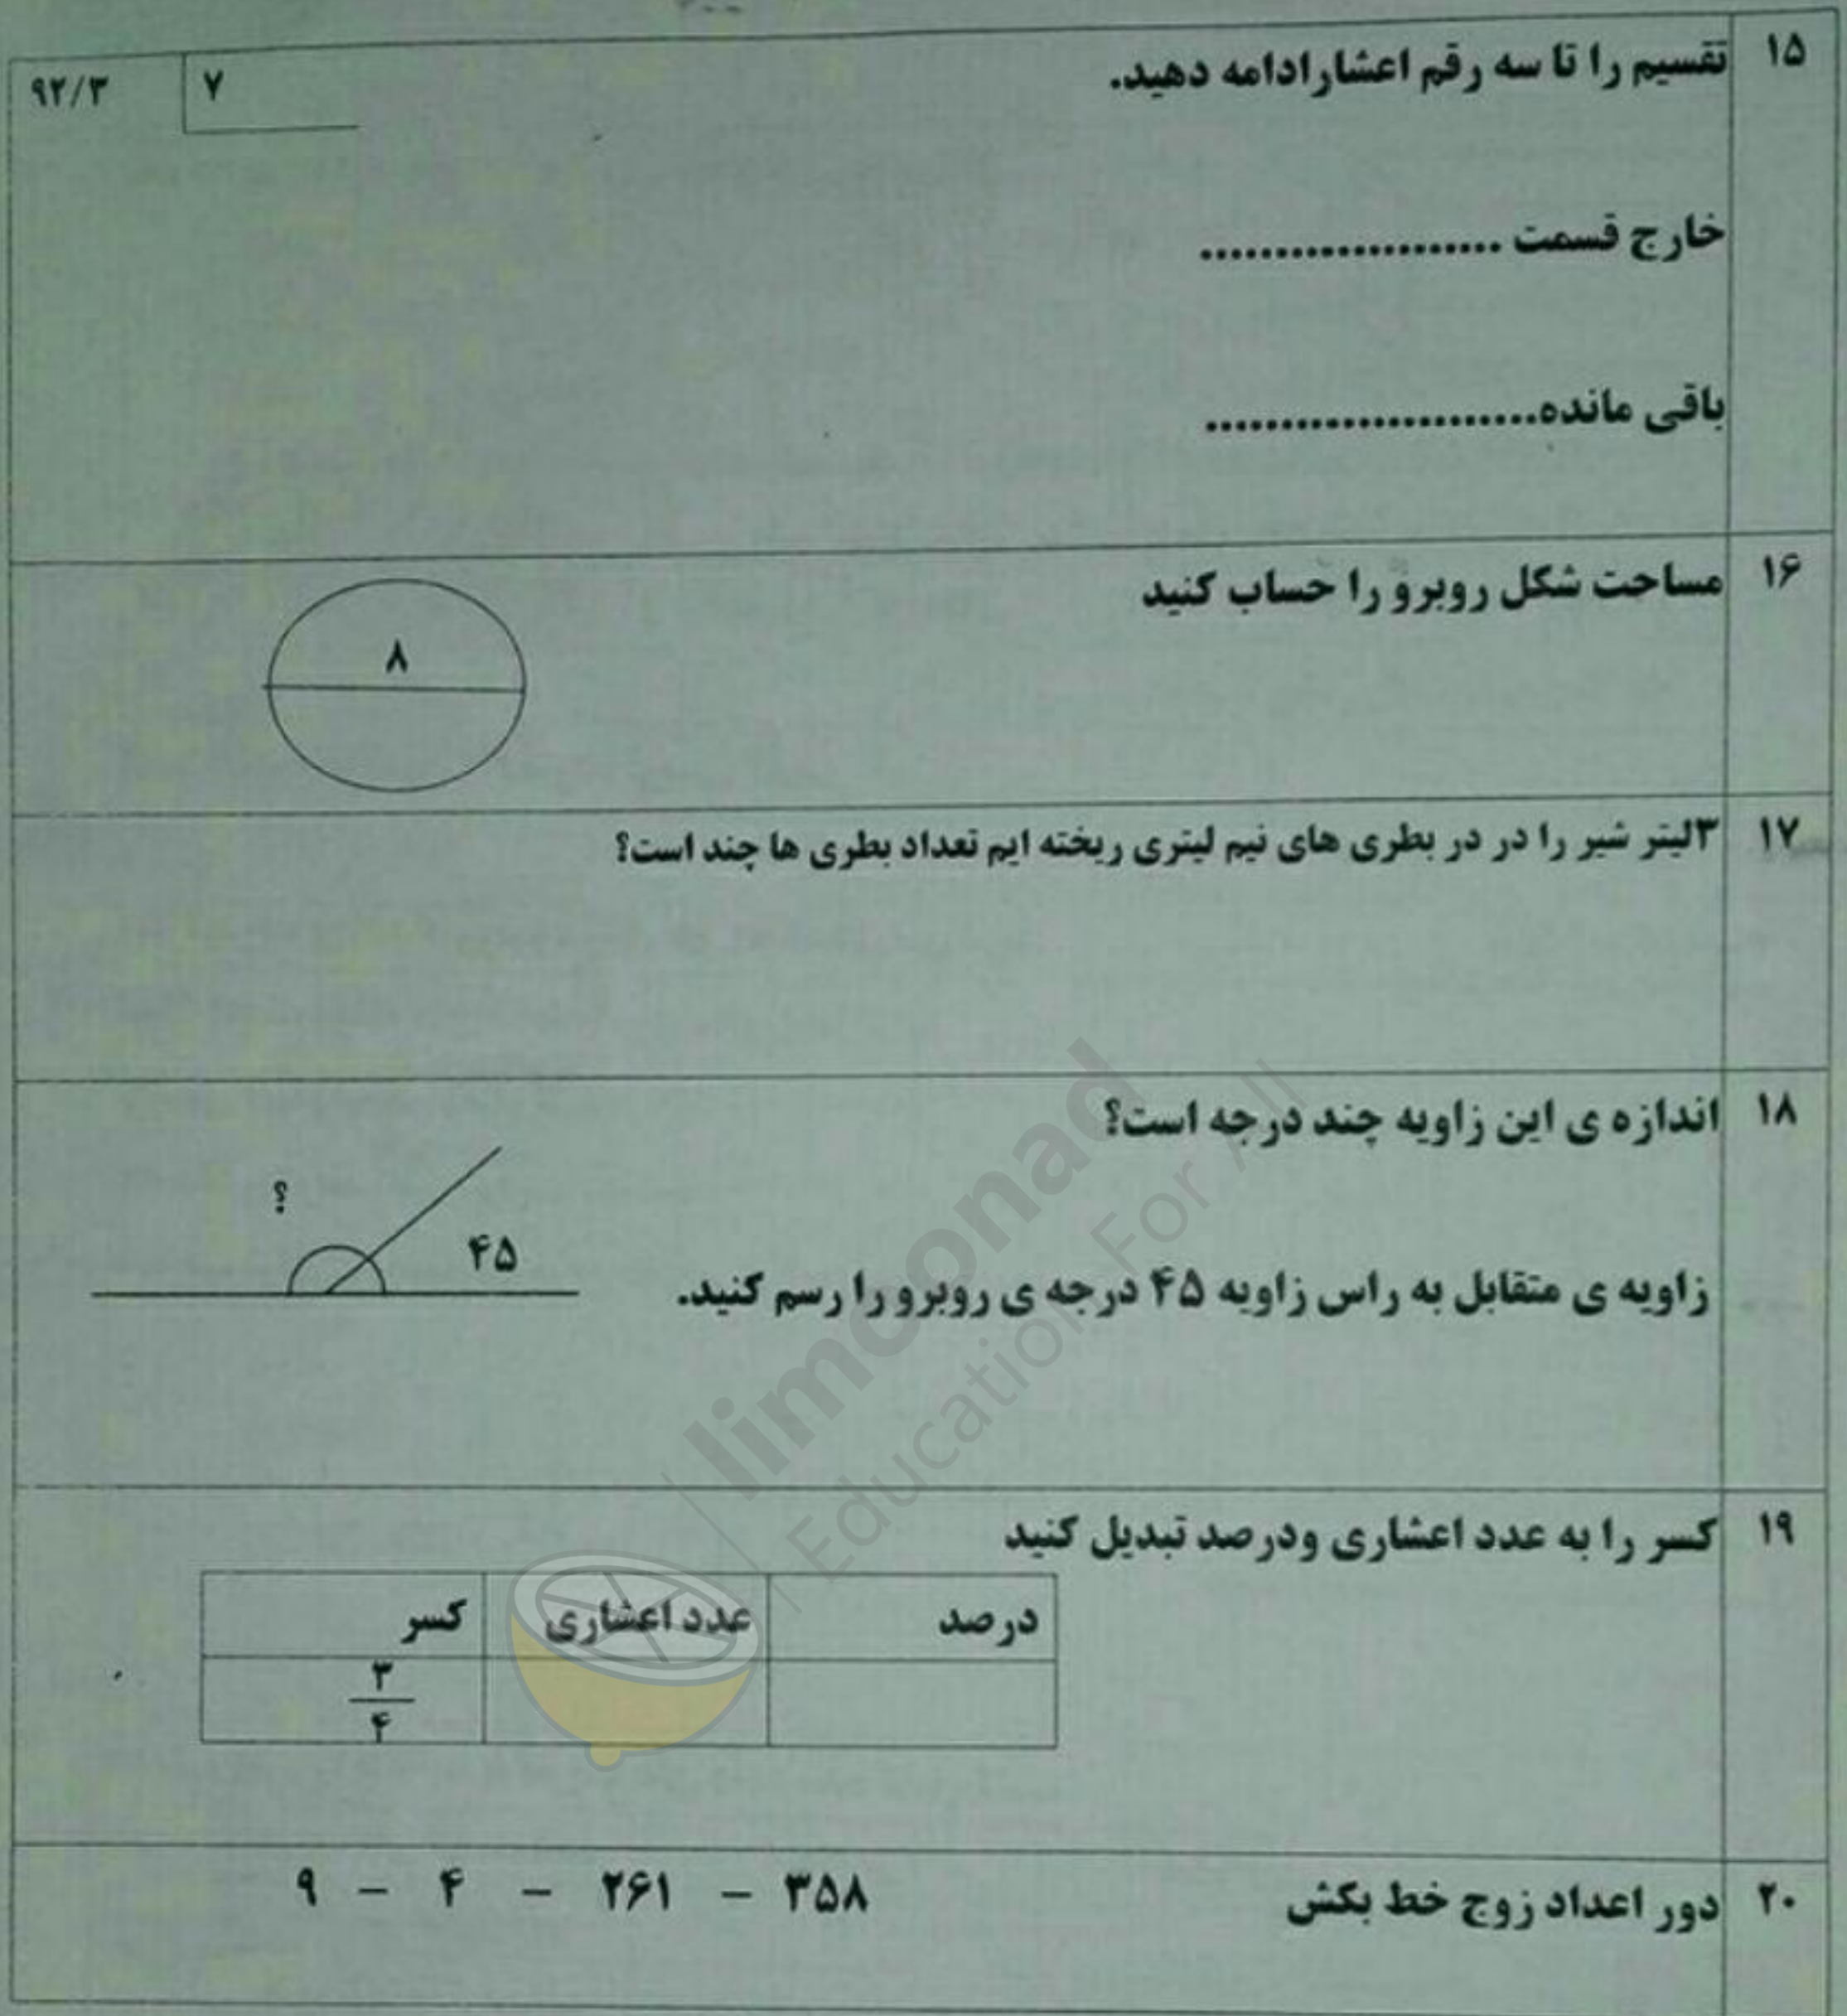 ۱۵ تقسیم را تا سه رقم اعشار ادامه دهید.
۹۲/۳ ۷
خارج قسمت ....................
باقی مانده......................
۱۶ مساحت شکل روبرو را حساب کنید
۸
۱۷ ۳لیتر شیر را در در بطری های نیم لیتری ریخته ایم تعداد بطری ها چند است؟
۱۸ اندازه ی این زاویه چند درجه است؟
؟
۴۵
زاویه ی متقابل به راس زاویه ۴۵ درجه ی روبرو را رسم کنید.
۱۹ کسر را به عدد اعشاری ودرصد تبدیل کنید
درصد عدد اعشاری کسر
۳
۴
۲۰ دور اعداد زوج خط بکش
۹ – ۴ – ۲۶۱ – ۳۵۸
limoonad
Education For All